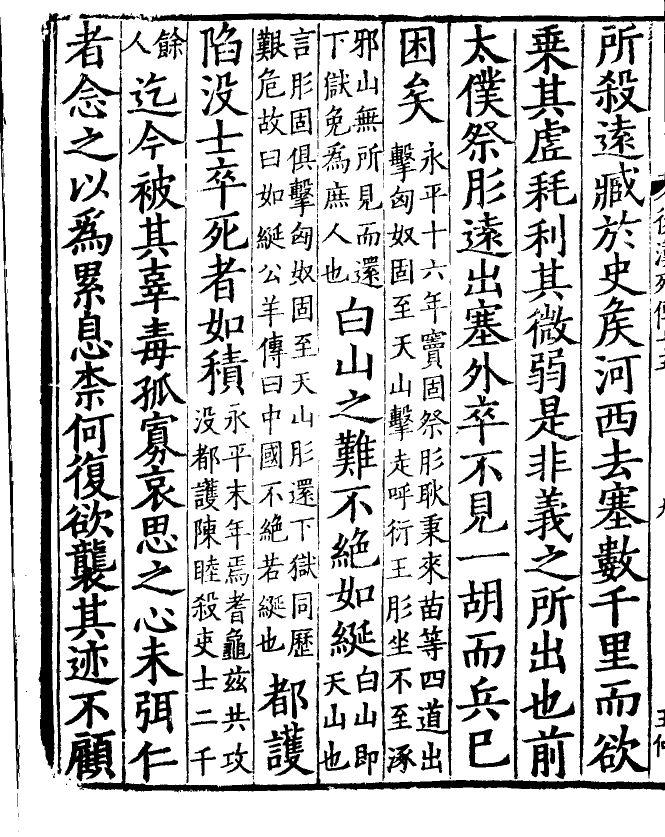 所殺遠臧於史侯河西去塞數千里而欲
乗其虗耗利其微弱是非義之所出也前
太僕祭肜遠出塞外卒不見一胡而兵巳
困矣
永平十六年竇固祭肜耿秉來苗等四道出
擊匈奴固至天山擊走呼衍王肜坐不至涿
邪山無所見而還
下獄免爲庶人也
白山之難不絶如綖
白山即
天山也
言肜固俱擊匈奴固至天山肜還下獄同歷
艱危故曰如綖公羊傳曰中國不絶若綖也
都護
陷没士卒死者如積
永平末年焉耆龜兹共攻
没都護陳睦殺吏士二千
餘
人
迄今被其辜毒孤寡哀思之心未弭仁
者念之以爲累息柰何復欲襲其迹不顧